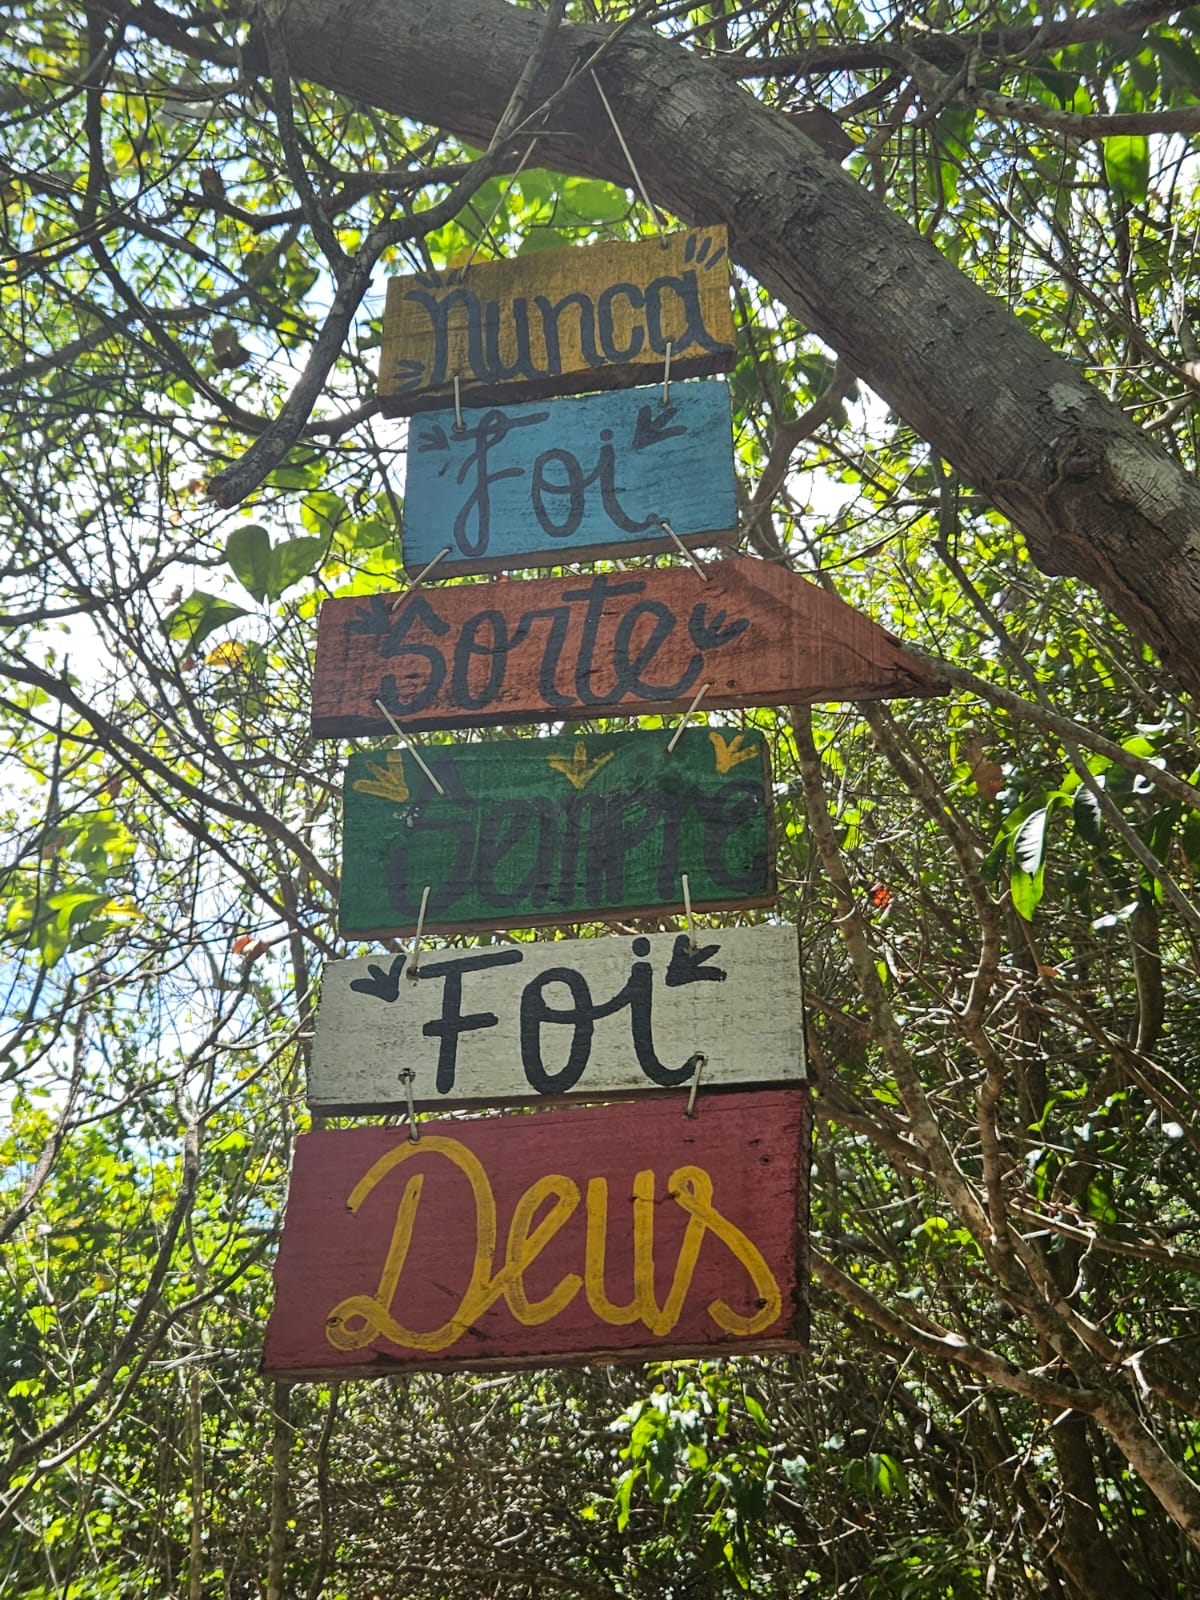 nunca
Foi
Sorte
Sempre
Foi
Deus